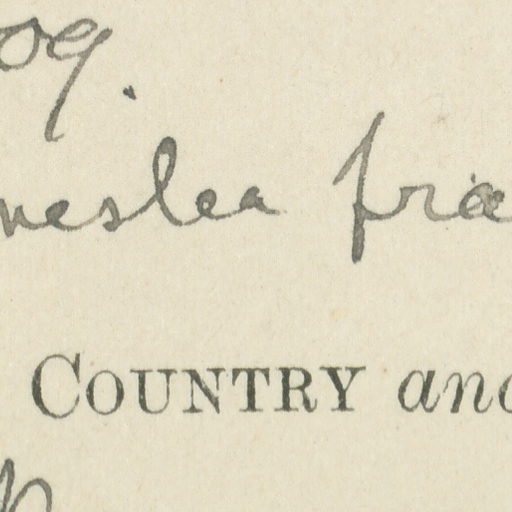 og.
neslea fra
COUNTRY and